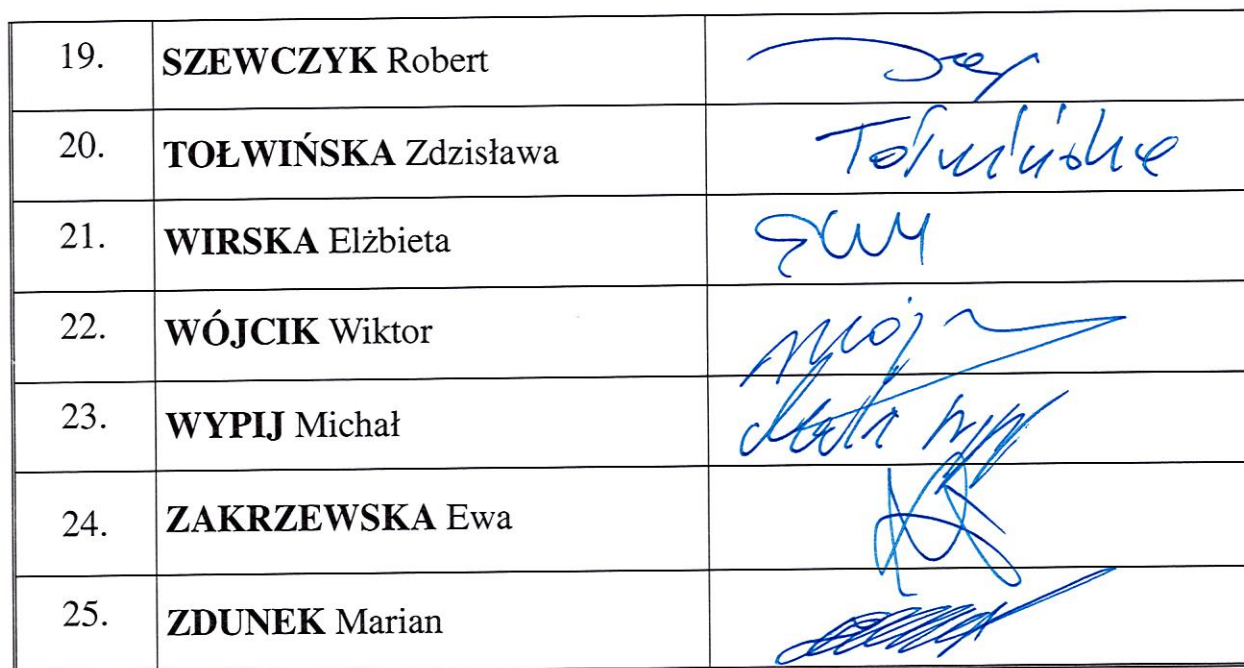 19. SZEWCZYK Robert
20. TOŁWIŃSKA Zdzisława Tołwińska
21. WIRSKA Elżbieta
22. WÓJCIK Wiktor
23. WYPIJ Michał
24. ZAKRZEWSKA Ewa
25. ZDUNEK Marian